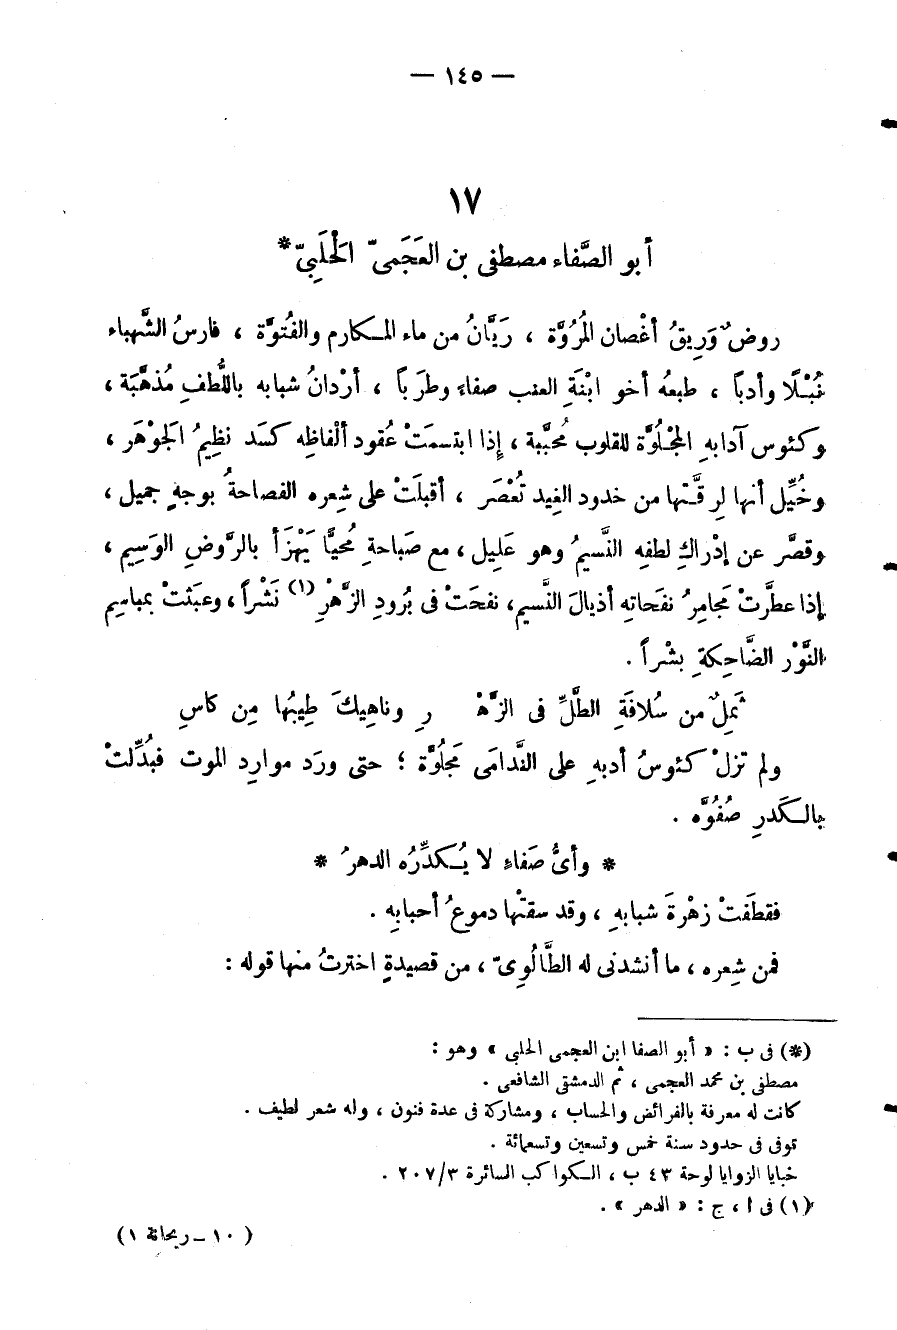 — ١٤٥ —
١٧
أبو الصَّفاء مصطفى بن العَجَمىّ الحَلَبِىّ*
روضٌ وَرِيقُ أغْصان المُرُوَّة ، رَيَّانُ من ماء المكارم والفُتوَّة ، فارسُ الشَّهباء
نُبْلًا وأدباً ، طبعهُ أخو ابْنَةِ العنب صفاءً وطرَباً ، أرْدانُ شبابه باللُّطفِ مُذهَّبَة ،
وكئوس آدابهِ المَجْلُوَّة للقلوب مُحبَّبة ، إذا ابتسمَتْ عُقود ألْفاظِه كسَد نظِيمُ الجوْهَر ،
وخُيِّل أنها لرِقَّتها من خدود الغِيد تُعْصَر ، أقبلَتْ على شِعره الفصاحةُ بوجهٍ جميل ،
وقصَّر عن إدْراكِ لطفهِ النَّسيمُ وهو عَلِيل ، مع صَباحةِ مُحيًّا يَهْزَأ بالرَّوضِ الوَسِيم ،
إذا عطَّرتْ مَجامِرُ نفَحاتهِ أذيالَ النَّسيم، نفحَتْ فى بُرُودِ الزَّهْرِ(١) نَشْراً ، وعبَثتْ بمباسِم
النَّوْر الضَّاحِكةِ بِشْراً .
ثَمِلٌ من سُلافَةِ الطَّلِّ فى الزَّهْـ ـرِ وناهِيكَ طِيبُها مِن كاسِ
ولم تزلْ كئوسُ أدبهِ على النَّدامَى مَجلُوَّة ؛ حتى ورَد موارِد الموت فبُدِّلتْ
بالكَدرِ صُفُوَّه .
* وأىُّ صَفاءٍ لا يُكدِّرُه الدهرُ *
فقطَفتْ زهْرةَ شبابهِ ، وقد سقتْها دموعُ أحبابِه .
فمن شِعره ، ما أنشدنى له الطَّالُوِىّ ، من قصيدةٍ اخترتُ منها قوله :
(*) فى ب : « أبو الصفا ابن العجمى الحلبى » وهو :
مصطفى بن محمد العجمى ، ثم الدمشقى الشافعى .
كانت له معرفة بالفرائض والحساب ، ومشاركة فى عدة فنون ، وله شعر لطيف .
توفى فى حدود سنة خمس وتسعين وتسعمائة .
خبايا الزوايا لوحة ٤٣ ب ، الكواكب السائرة ٢٠٧/٣ .
(١) فى ا ، ج : « الدهر » .
( ١٠ - ريحانة ١ )